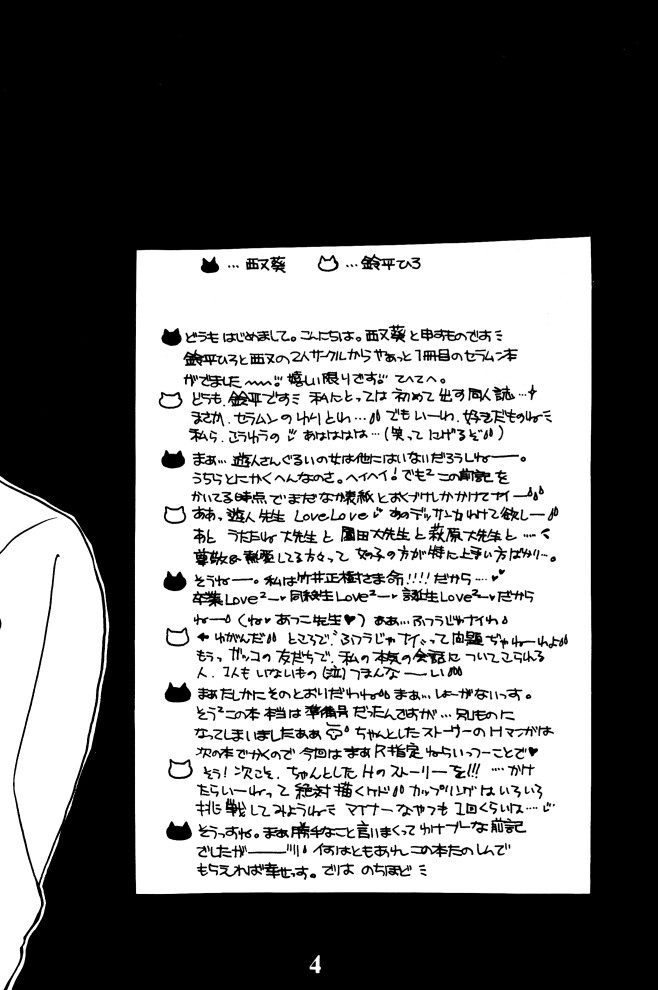 …西又葵 …鈴平ひろ
どうも はじめまして。こんにちは。西又葵と申すものです
鈴平ひろと西又の2人サークルからやぁっと1冊目のセラムン本
がでました〜〜!! 嬉しい限りです!! てへてへ。
どうも、鈴平です 私にとっては初めて出す同人誌…
まさか、セラムンの とわ… でもいーわ、好きだものね
私ら、こうゆうの あはははは…(笑ってにげるぞ)
まぁ…遊人さんぐるいの女は他にはいないだろうしねー。
うちらとにかくへんなのさ。ヘイヘイ!でも²この前記を
かいてる時点でまだ 表紙と しかかけてナイー
ああっ遊人先生 LoveLove あのデッサン力わけて欲しー
あと うたたね大先生と園田大先生と萩原大先生と……
尊敬&熱愛してる方々って 女の子の方が特に上手い方ばかり…。
そうねー。私は竹井正樹さま命!!!!だから…♥♥
卒業Love²ー♥同級生Love²ー♥誕生Love²ーだから
ねー(ね♥あつこ先生♥)ああ…ふつうじゃナイわ
←ゆがんだ ところで、ふつうじゃナイって問題ぢゃねーわよ
もうっガッコの友だちで、私の本気の会話についてこられる
人、1人もいないもの(泣)つまんなーーい
まあたしかにそのとおりだわね まぁ…しょーがないっす。
そう²この本 本当は準備号だったんですが…別ものに
なってしまいましたああ ちゃんとしたストーリーのHマンガは
次の本でかくので 今回はまあR指定ねらいっつーことで♥
そう!次こそ、ちゃんとしたHのストーリーを!!! …かけ
たらいーねって 絶対描くケド カップリングはいろいろ
挑戦してみようね マイナーなやつも1回くらいは…
そうっすね。まあ勝手なこと言いまくってワケブーな前記
でしたがーー!! 何はともあれ この本たのしんで
もらえれば幸せっす。では のちほど
4